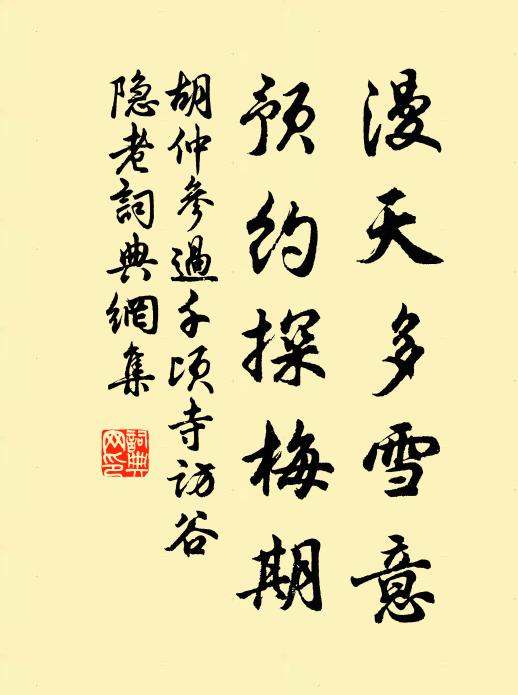 漫天多雪意
预约探梅期
胡仲参過千顷寺访谷
隐老詞典網集
詞典
网印